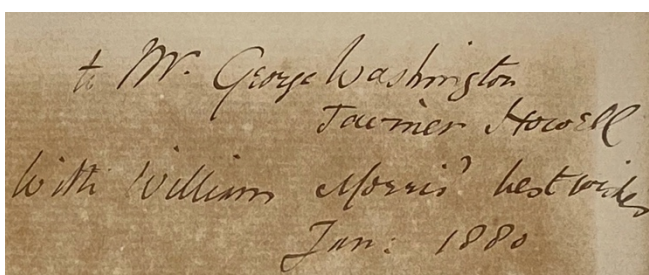 to Mr. George Washington
Taverner Howell
With William Morris' best wishes
Jan: 1880